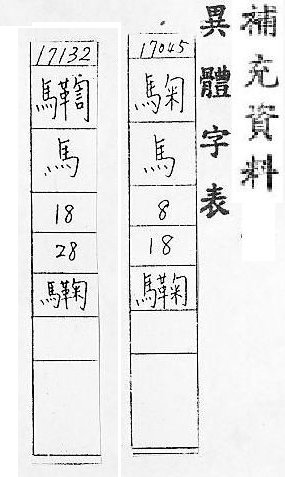 補充資料
異體字表
17045
䮗
馬
8
18
驧
17132
馬
18
28
驧